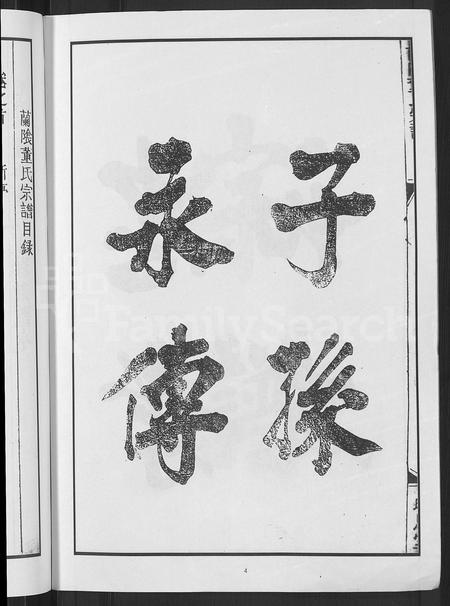 子孫
永傳
蘭陰董氏宗譜目錄
FamilySearch
4